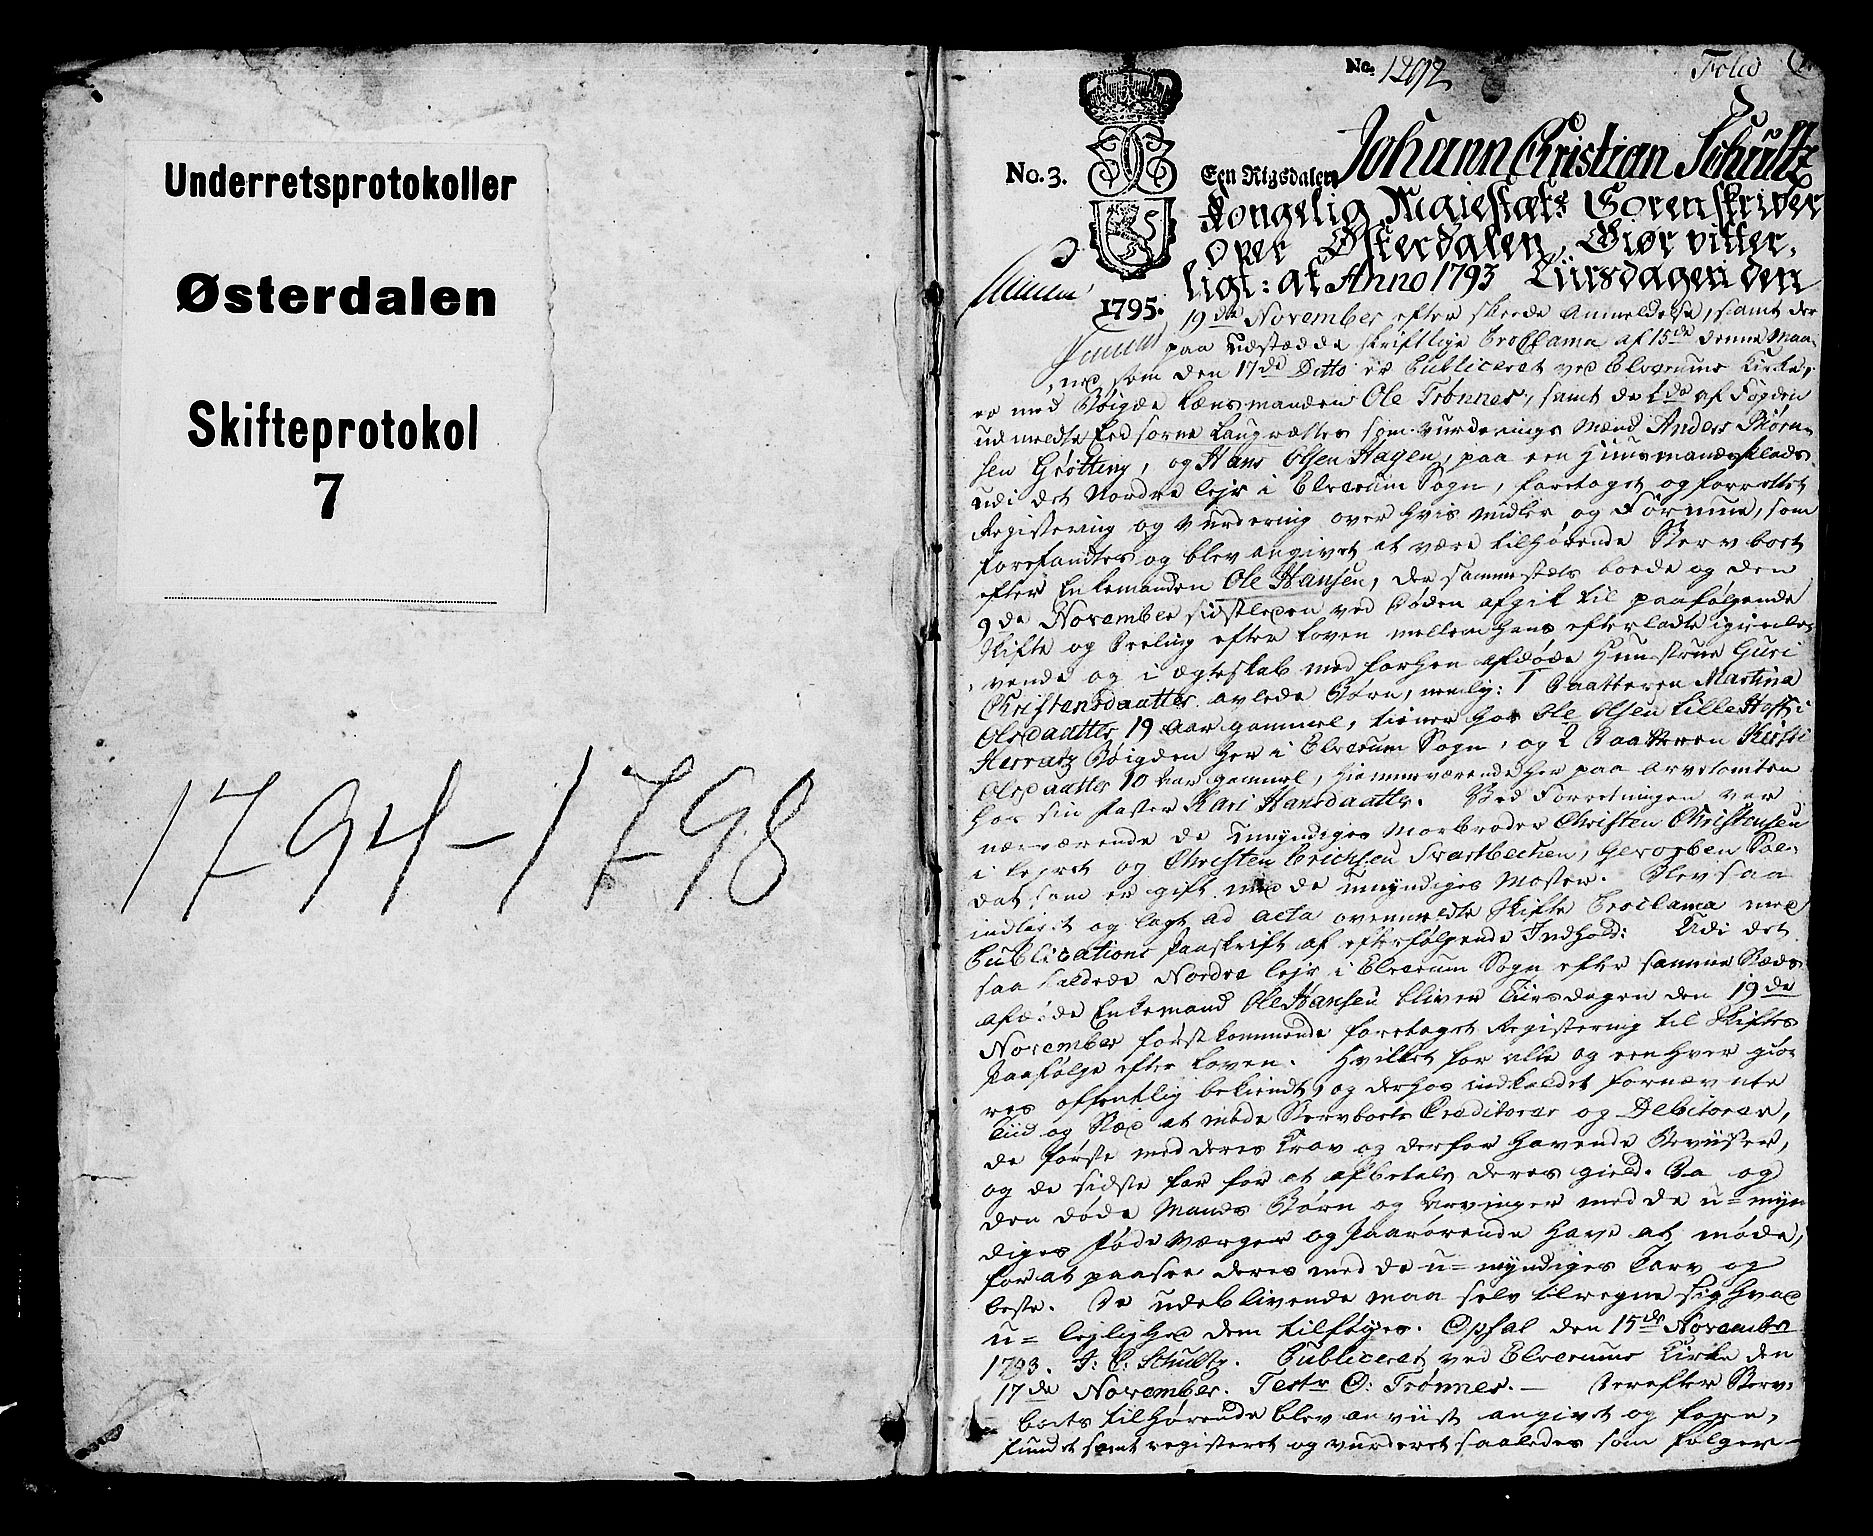 Underretsprotokoller
Østerdalen
Skifteprotokol
7
1794-1798
No. 1292
Folio
No. 3.
Een Rigsdaler
1795.
Johann Christian Schultz
Kongelig Majestæts Sorenskriver
over Østerdalen, Giør vitter-
ligt: at Anno 1793 Tiirsdagen den
19de November efter skeede Anmeldelse, samt der
paa udstædde skriftlige Proclama af 15de denne Maa-
ned som den 17de Ditto er Publiceret ved Elverums Kirke,
er med Bøigde Lænsmanden Ole Trønnes, samt de 2de af Fogden
udmeldte Eedsorne Laugrættes som vurderings Mænd Anders Biørn-
sen Grøtting, og Hans Olsen Hagen, paa een Huusmandsplads
udi det Nordre lejr i Elverum Sogn, foretaget og forrettet
Registering og Vurdering over hvis Midler og Formue, som
forefandtes og blev angivet at være tilhørende Sterv boet
efter Enkemanden Ole Hansen, der sammestæds boede og den
9de November sidstleden ved Døden afgik til paafølgende
Skifte og Deeling efter Loven mellem hans efterladte igienle-
vende og i ægteskab med forhen afdøde Hustrue Guri
Christensdaatter avlede Børn, nemlig: 1 Daatteren Martina
Olsdaatter 19 Aar gammel, tiener hos Ole Olsen Lille Hoff i
Herratz Bøigden her i Elverum Sogn, og 2 Daatteren Kirsti
Olsdaatter 10 Aar gammel, hiemmeværende her paa Arvetomten
hos sin Faster Kari Hansdaatter. Ved Forretningen var
nærværende de Umyndiges Morbroder Christen Christensen
i lejret og Christen Erichsen Svartbechen, Gevorben Sol-
dat, som er gift med de Umyndiges Moster. Blev saa
indlagt og lagt ad acta ovenmeldte Skifte Proclama med
Publications Paaskrift af efterfølgende Indhold: Udi det
saa kaldede Nordre lejr i Elverum Sogn efter samme Stæds
afdøde Enkemand Ole Hansen bliver Tiirsdagen den 19de
November førstkommende foretaget Registering til Skiftes
Paafølge efter Loven. Hvilket for alle og eenhver giø-
res offentlig bekiendt, og derhos indkaldet fornævnte
Tiid og Stæd at møde Stervboets Creditorer og Debitorer,
de første med deres Krav og derfor havende Beviiser,
og de sidste for at afbetale deres gield. Da og
den døde Mands Børn og Arvinger med de u=myn
diges fødeværger og Paarørende have at møde,
for at paasee deres med de u=myndiges Tarv og
beste. De udeblivende maa selv tilregne sig hvad
u=lejlighed dem tilføyes. Opsal den 15de November
1793. J: C: Schultz. Publiceret ved Elverums Kirke den
17de November. Testr O: Trønnes. — Derefter Sterv-
boets tilhørende blev anviist angivet og fore-
fundet samt registeret og vurderet saaledes som følger—